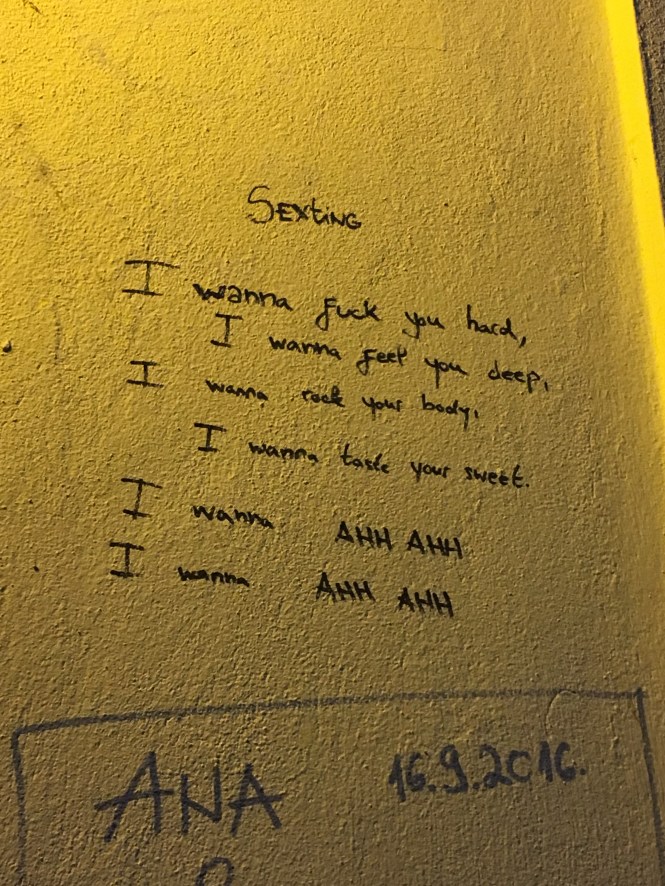 SEXtiNG
I wanna fuck you hard,
I wanna feel you deep,
I wanna rock your body,
I wanna taste your sweet.
I wanna AHH AHH
I wanna AHH AHH
ANA 16.9.2016.